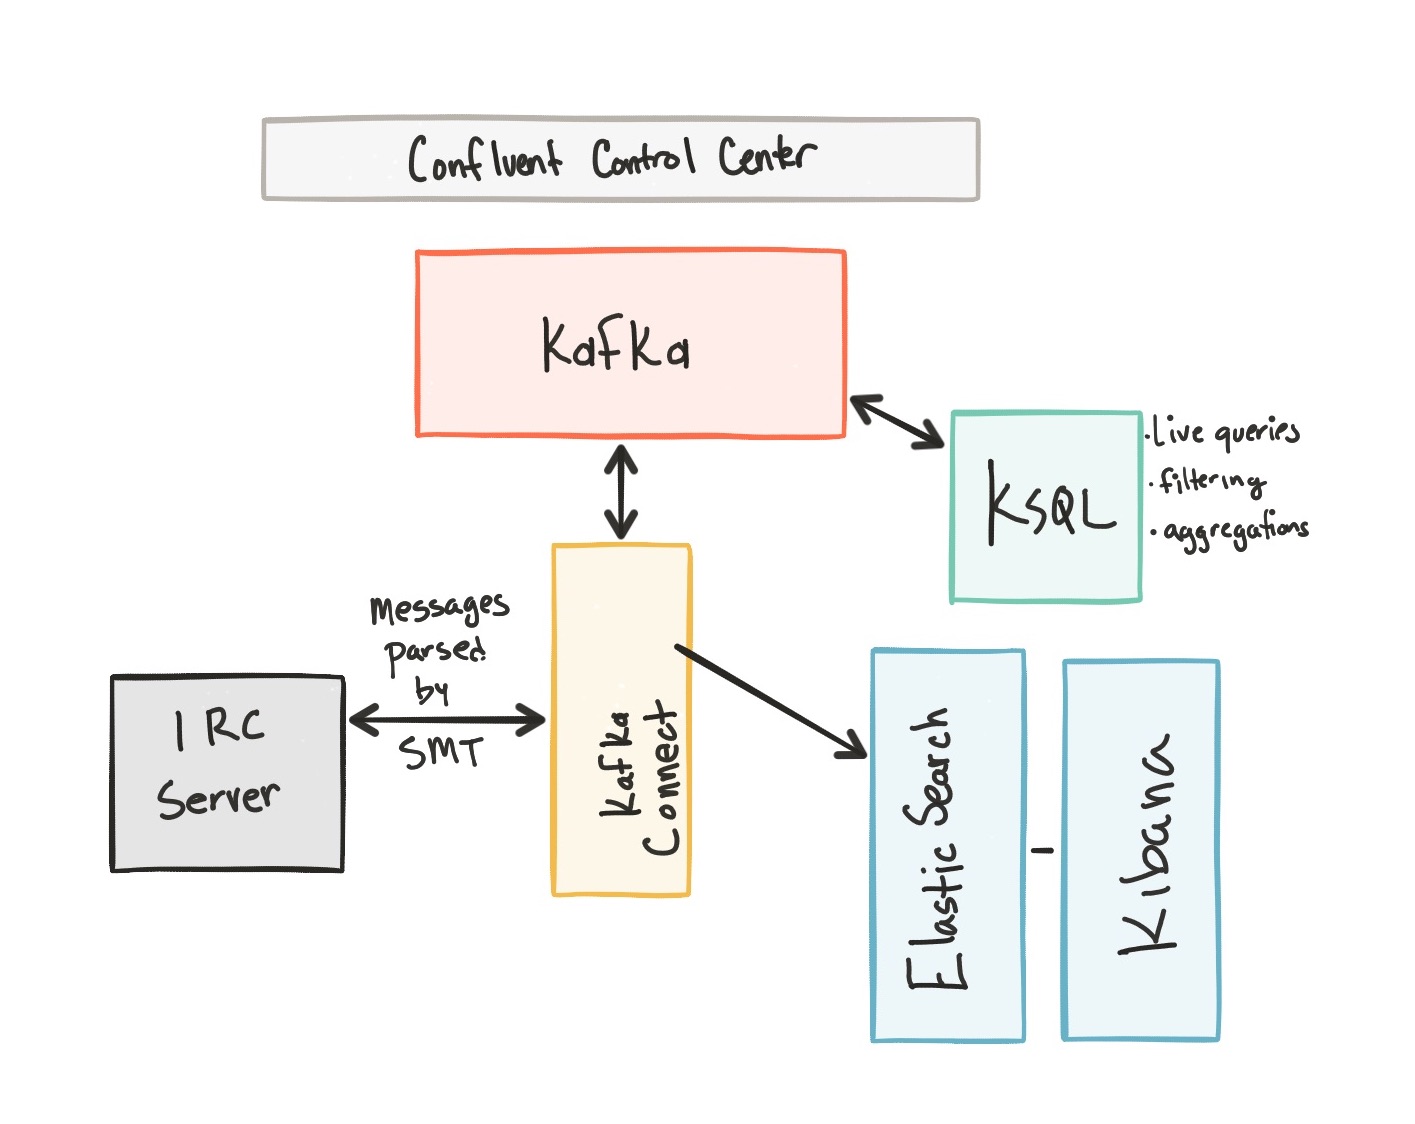 Confluent Control Center
Kafka
KSQL
· Live queries
· filtering
· aggregations
Messages
parsed
by
SMT
IRC
Server
Kafka
Connect
Elastic Search
-
Kibana